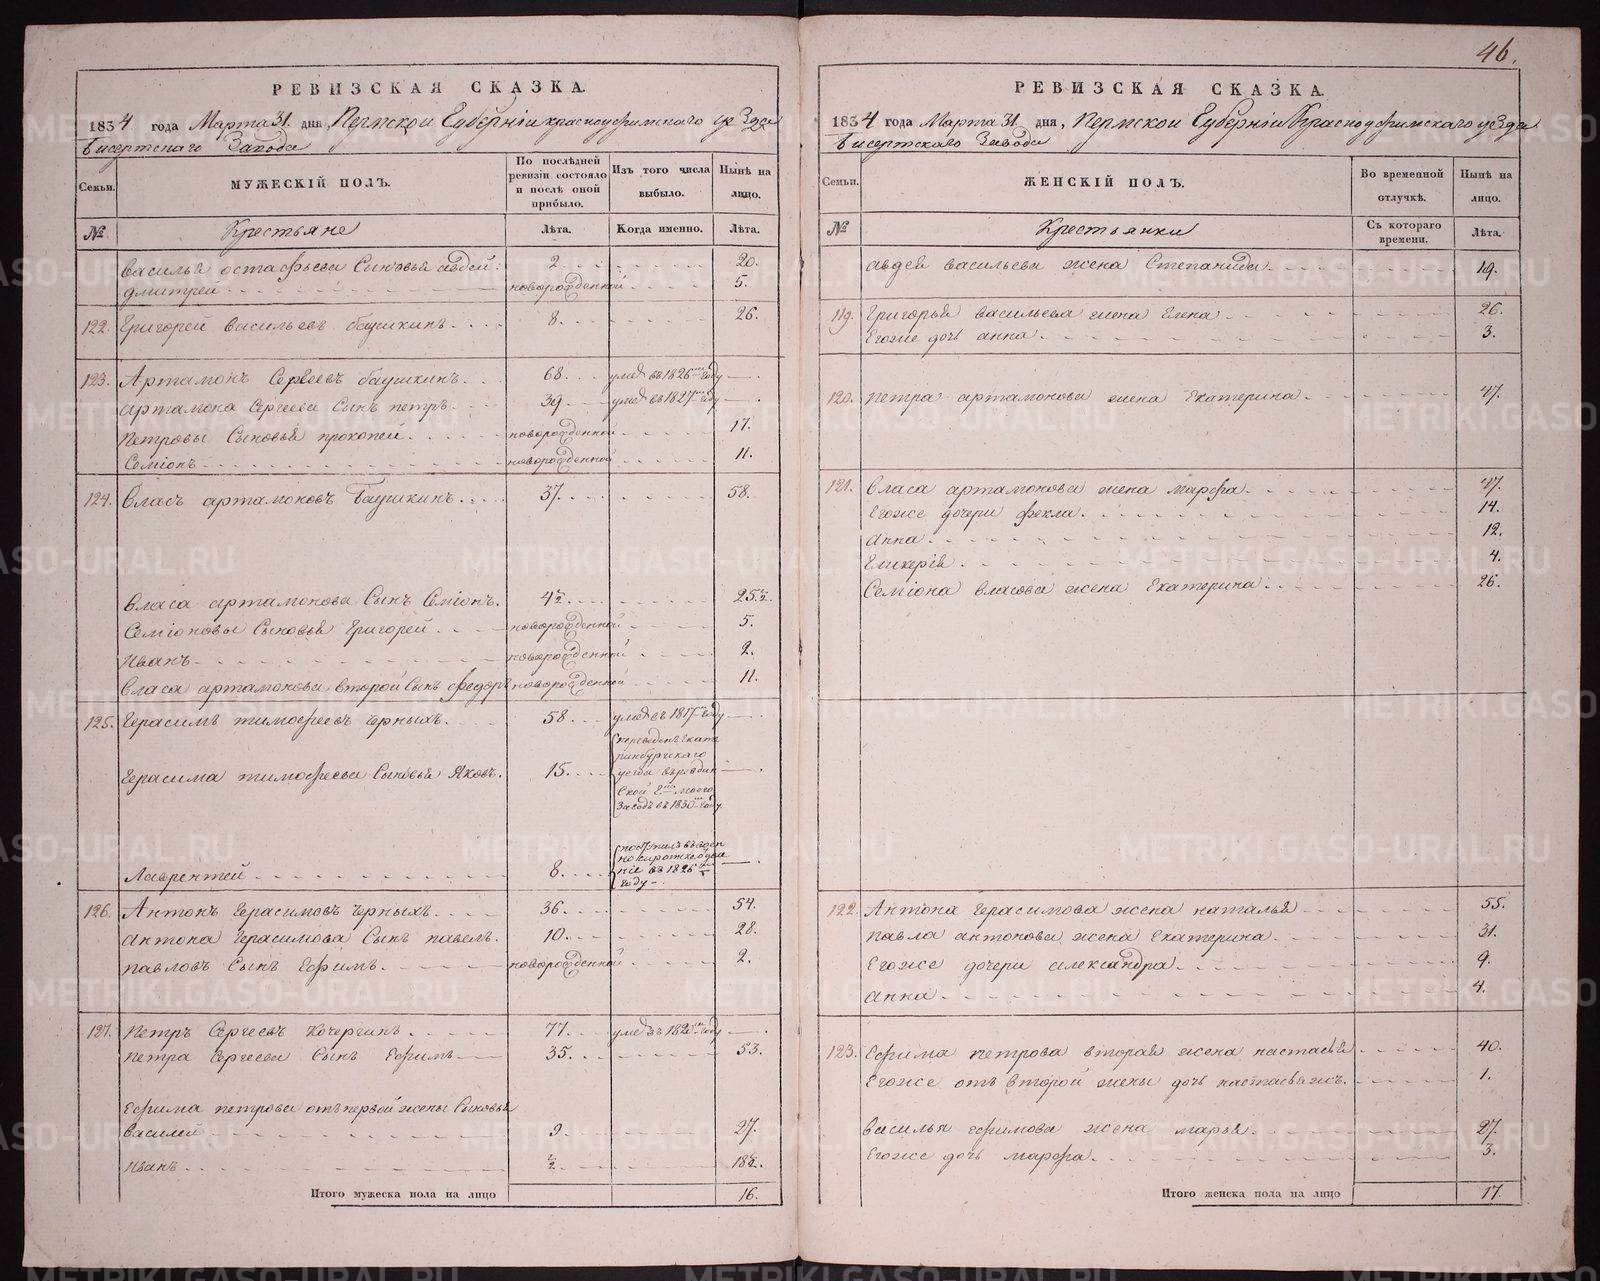 46.
РЕВИЗСКАЯ СКАЗКА.
1834 года Марта 31. дня, Пермской Губерніи красноуфимского уезда
Бисертскаго Завода
Семьи. МУЖЕСКІЙ ПОЛЪ. По послѣдней ревизіи состояло и послѣ оной прибыло. Изъ того числа выбыло. Нынѣ на лицо.
№ Крестьяне Лѣта. Когда именно. Лѣта.
Василья остафьева Сыновья авдей. 2. 20.
дмитрей новорожденной 5.
122. Григорей васильевъ баушкинъ. 8. 26.
123. Артамонъ Сергеевъ баушкинъ. 68. умер въ 1826 году
артамона Сергеева Сынъ петръ. 39 умер въ 1827 году
петровы Сыновья прокопей. новорожденной 17.
Семіонъ новорожденной 11.
124. Власъ артамоновъ Баушкинъ. 37. 58.
Власа артамонова Сынъ Семіонъ. 4½. 25½.
Семіоновы Сыновья Григорей. новорожденной 5.
Иванъ новорожденной 2.
Власа артамонова второй Сынъ федоръ новорожденной 11.
125. Герасимъ тимофеевъ Черныхъ. 58. умер въ 1817 году
Герасима тимофеева Сыновья Яковъ. 15. переведенъ Екате
ринбургскаго
уезда въ ревдин
ской
Заводъ въ 1830 году.
Лаврентей 8. году
126. Антонъ Герасимовъ Черныхъ. 36. 54.
антона Герасимова Сынъ павелъ. 10. 28.
павловъ Сынъ Ефимъ. новорожденной 2.
127. Петръ Сергеевъ Кочергинъ. 77. умер въ году
петра Сергеева Сынъ Ефимъ 35. 53.
Ефима петрова отъ первой жены Сыновья
василей 9. 27.
Иванъ ½. 18½.
Итого мужеска пола на лицо 16.
РЕВИЗСКАЯ СКАЗКА.
1834 года Марта 31. дня, Пермской Губерніи Красноуфимскаго уезда
Бисертскаго Завода
Семьи. ЖЕНСКІЙ ПОЛЪ. Во временной отлучкѣ. Нынѣ на лицо.
№ Крестьянки Съ котораго времени. Лѣта.
авдея васильева жена Степанида. 19.
119. Григорья васильева жена Елена 26.
Егоже дочь анна. 3.
120. петра артамонова жена Екатерина. 47.
121. Власа артамонова жена марфа. 47.
Егоже дочери фекла. 14.
Анна 12.
Гликерія. 4.
Семіона власова жена Екатерина 26.
122. Антона Герасимова жена наталья 55.
павла антонова жена Екатерина. 31.
Егоже дочери александра. 9.
анна 4.
123. Ефима петрова вторая жена настасья 40.
Егоже отъ второй жены дочь настасья жъ. 1.
василья ефимова жена марья. 27.
Егоже дочь марфа. 3.
Итого женска пола на лицо 17.
METRIKI.GASO-URAL.RU